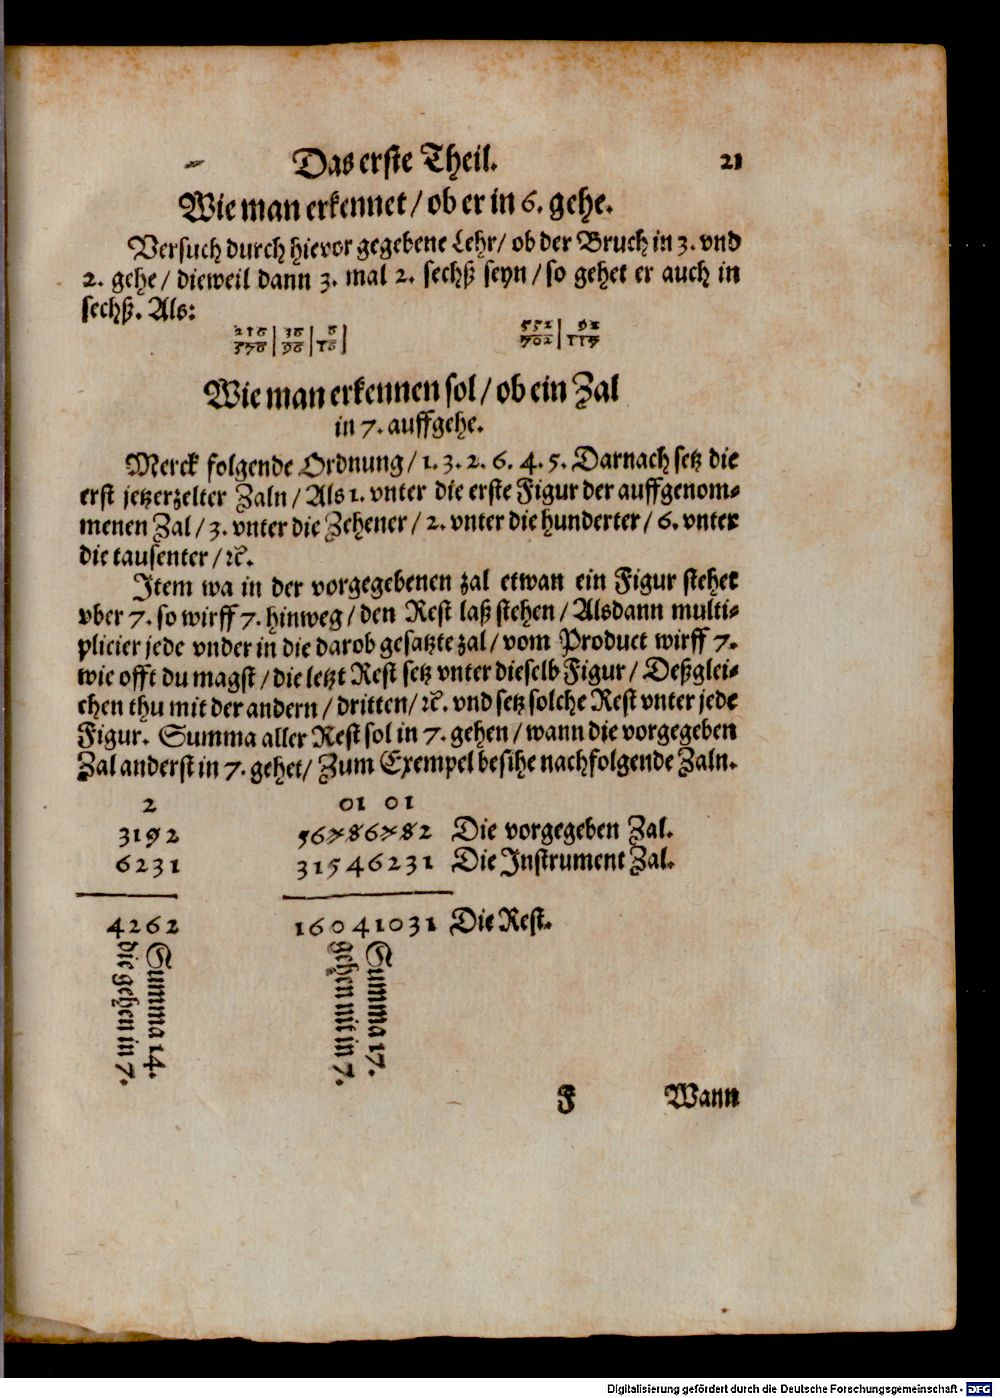 Das erste Theil. 21
Wie man erkennet / ob er in 6. gehe.
Versuch durch hievor gegebene Lehr / ob der Bruch in 3. vnd
2. gehe / dieweil dann 3. mal 2. sechß seyn / so gehet er auch in
sechß. Als:
216 | 36 | 6 | 552 | 92
576 | 96 | 16 | 702 | 117
Wie man erkennen sol / ob ein Zal
in 7. auffgehe.
Merck folgende Ordnung / 1. 3. 2. 6. 4. 5. Darnach setz die
erst jetzerzelter Zaln / Als 1. vnter die erste Figur der auffgenom-
menen Zal / 3. vnter die Zehener / 2. vnter die hunderter / 6. vnter
die tausenter / ꝛc.
Item wa in der vorgegebenen zal etwan ein Figur stehet
vber 7. so wirff 7. hinweg / den Rest laß stehen / Alsdann multi-
plicier jede vnder in die darob gesatzte zal / vom Product wirff 7.
wie offt du magst / die letzt Rest setz vnter dieselb Figur / Deßglei-
chen thu mit der andern / dritten / ꝛc. vnd setz solche Rest vnter jede
Figur. Summa aller Rest sol in 7. gehen / wann die vorgegeben
Zal anderst in 7. gehet / Zum Exempel besihe nachfolgende Zaln.
2 01 01
3192 56786782 Die vorgegeben Zal.
6231 31546231 Die Instrument Zal.
4262 16041031 Die Rest.
Summa 14.
die gehen in 7.
Summa 17.
gehen nit in 7.
F Wann
Digitalisierung gefördert durch die Deutsche Forschungsgemeinschaft - DFG